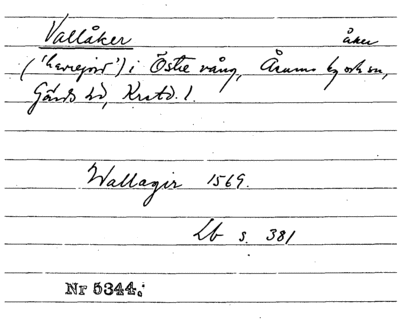 Vallåker åker
('Lerjord') i Östre vång, Årums by och sn,
Gärds hd, Krstd. l.
Wallagir 1569.
Lb s. 381
Nr 5344.